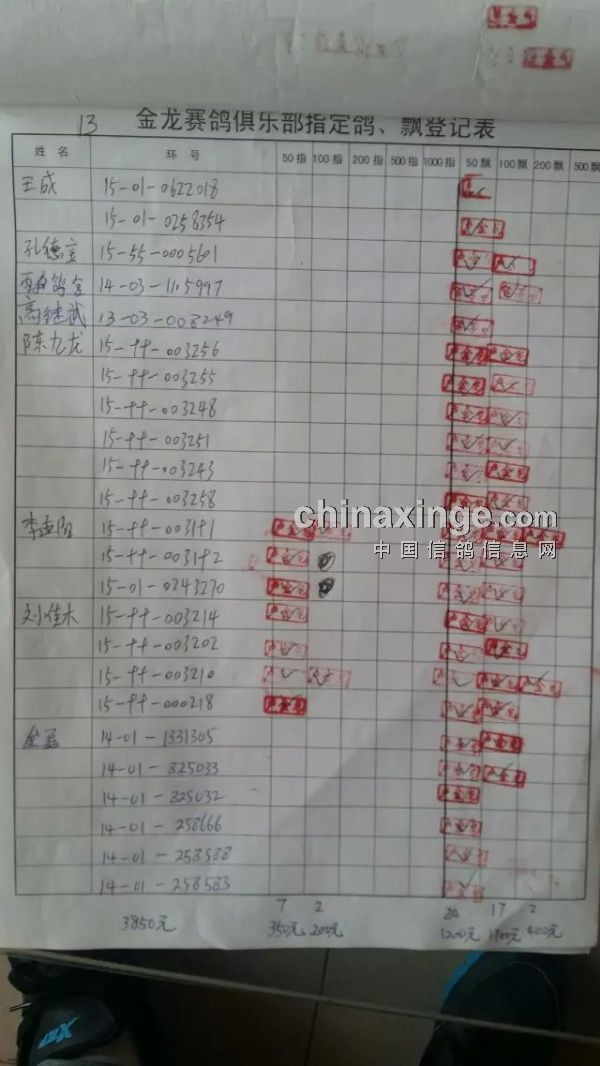 13 金龙赛鸽俱乐部指定鸽、飘登记表
姓名 环号 50指 100指 200指 500指 1000指 50飘 100飘 200飘 500飘
王成 15-01-0622018
15-01-0258354
孔德宝 15-55-0005601
14-03-1115997
高继武 13-03-008249
陈九龙 15-99-003256
15-99-003255
15-99-003248
15-99-003251
15-99-003243
15-99-003258
15-99-003191
15-99-003192
15-01-0243270
刘佳木 15-99-003214
15-99-003202
15-99-003210
15-99-000218
14-01-1331305
14-01-825033
14-01-825032
14-01-258666
14-01-258588
14-01-258583
7 2 24 17 2
3850元 350元 200元 1200元 1700元 400元
chinaxinge.com
中国信鸽信息网